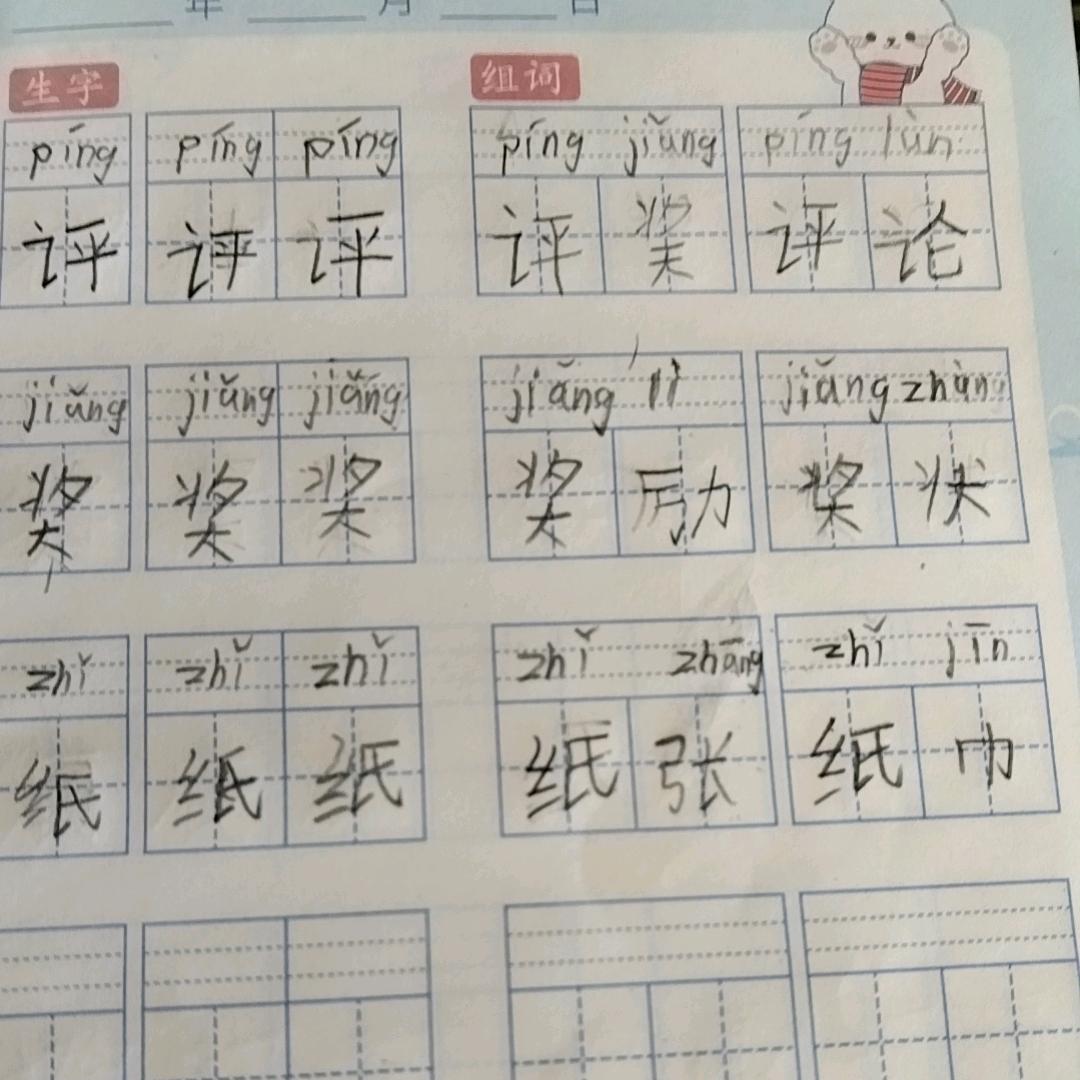 年 月 日
生字 组词
píng píng píng píng jiǎng píng lùn
评 评 评 评 奖 评 论
jiǎng jiǎng jiǎng jiǎng lì jiǎng zhàng
奖 奖 奖 奖 励 奖 状
zhǐ zhǐ zhǐ zhǐ zhāng zhǐ jīn
纸 纸 纸 纸 张 纸 巾